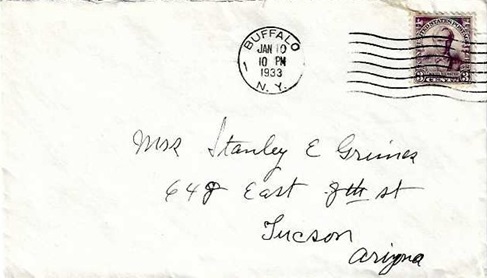 BUFFALO
JAN 10
10 PM
1933
N. Y.
1
UNITED STATES POSTAGE
3 3
Mrs Stanley E Grimes
648 East 8th st
Tucson
Arizona